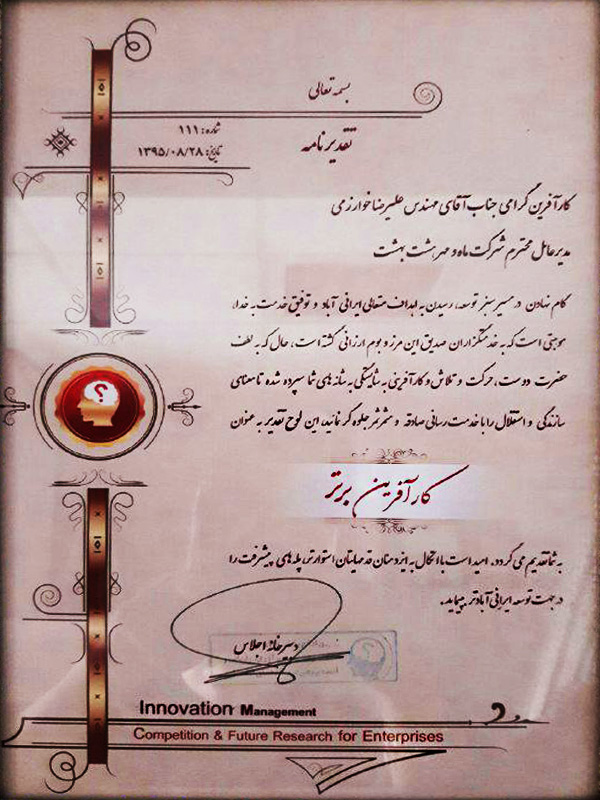 بسمه تعالی
شماره: ۱۱۱
تاریخ: ۱۳۹۵/۰۸/۲۸
تقدیرنامه
کارآفرین گرامی جناب آقای مهندس علیرضا خوارزمی
مدیرعامل محترم شرکت ماه و مهر هشت بهشت
گام نهادن در مسیر سبز توسعه، رسیدن به اهداف متعالی ایرانی آباد و توفیق خدمت به خدا،
موهبتی است که به خدمتگزاران صدیق این مرز و بوم ارزانی گشته است، حال که به لطف
حضرت دوست، حرکت و تلاش و کارآفرینی به شایستگی به شانه های شما سپرده شده تا معنای
سازندگی و استقلال را با خدمت رسانی صادقانه و مثمرثمر جلوه گر نمائید، این لوح تقدیر به عنوان
کارآفرین برتر
به شما تقدیم می گردد، امید است با اتکال به ایزدمنان قدمهایتان استوارتر، پله های پیشرفت را
در جهت توسعه ایرانی آبادتر بپیماید.
دبیرخانه اجلاس
Innovation Management
Competition & Future Research for Enterprises